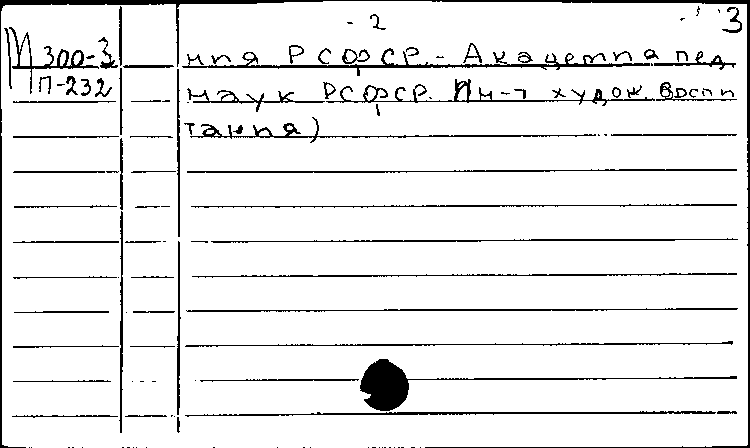 - 2
3
М 300-3
П-232
ния РСФСР. - Академия пед.
наук РСФСР. Ин-т худож. воспи
тания)